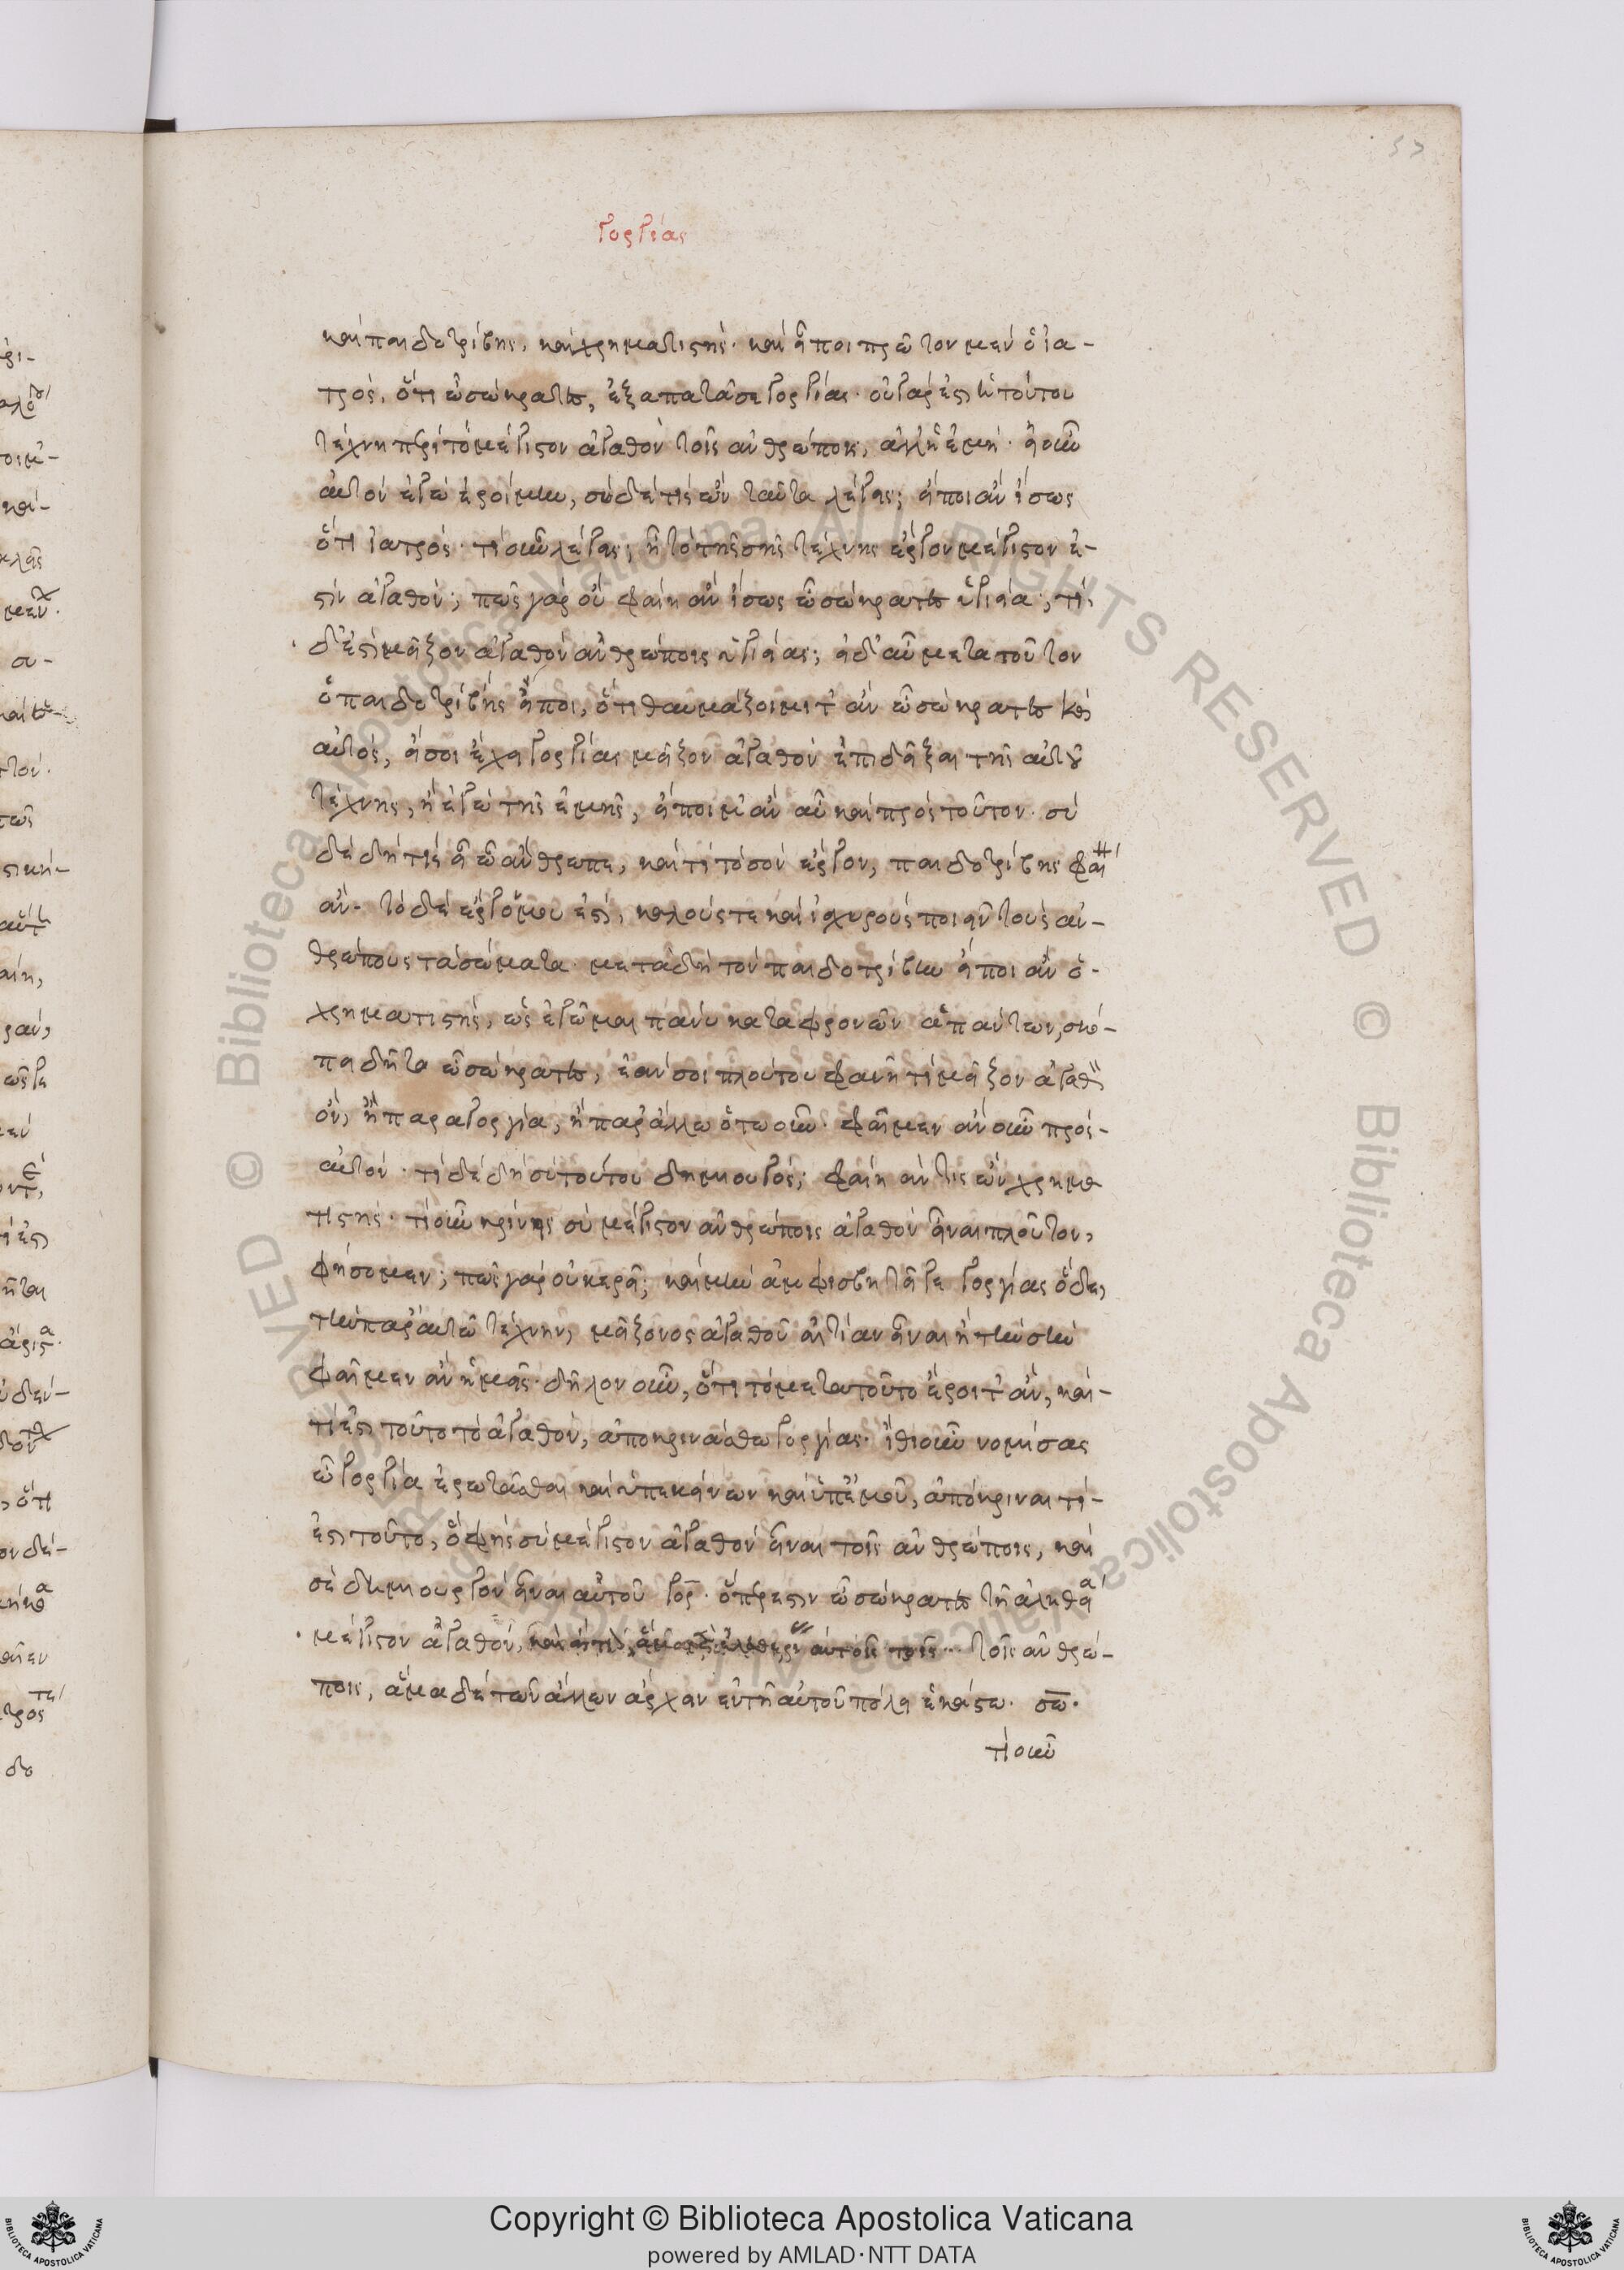 γοργίας
καὶ παιδοτρίβης, καὶ χρηματιστής· καὶ εἴποι πρῶτον μὲν ὁ ἰα-
τρός, ὅτι ὦ σώκρατες, ἐξαπατᾶ σε γοργίας· οὐ γάρ ἐστιν ἡ τούτου
τέχνη περὶ τὸ μέγιστον ἀγαθὸν τοῖς ἀνθρώποις, ἀλλ' ἡ ἐμή· εἰ οὖν
αὐτὸν ἐγὼ ἐροίμην, σὺ δὲ τίς ὢν ταῦτα λέγεις; εἴποι ἂν ἴσως
ὅτι ἰατρός· τί οὖν λέγεις; ἢ τὸ τῆς σῆς τέχνης ἔργον μέγιστον ἐ-
στὶν ἀγαθόν; πῶς γὰρ οὐ φαίη ἂν ἴσως ὦ σώκρατες ὑγιεία; τί
δ' ἐστὶ μεῖζον ἀγαθὸν ἀνθρώποις ὑγιείας; εἰ δ' αὖ μετὰ τοῦτον
ὁ παιδοτρίβης εἴποι, ὅτι θαυμάζοιμι τ' ἂν ὦ σώκρατες καὶ
αὐτός, εἴ σοι ἔχει γοργίας μεῖζον ἀγαθὸν ἐπιδεῖξαι τῆς αὐτοῦ
τέχνης, ἢ ἐγὼ τῆς ἐμῆς, εἴποιμ' ἂν αὖ καὶ πρὸς τοῦτον· σὺ
δὲ δὴ τίς εἶ ὦ ἄνθρωπε, καὶ τί τὸ σὸν ἔργον, παιδοτρίβης φαίη
ἄν· τὸ δὲ ἔργόν μου ἐστὶ, καλούς τε καὶ ἰσχυροὺς ποιεῖν τοὺς ἀν-
θρώπους τὰ σώματα· μετὰ δὴ τὸν παιδοτρίβην εἴποι ἂν ὁ
χρηματιστής, ὡς ἐγᾦμαι πάνυ καταφρονῶν ἁπάντων, σκό-
πει δῆτα ὦ σώκρατες, ἐάν σοι πλούτου φανῇ τι μεῖζον ἀγαθ
όν, ἢ παρὰ γοργία, ἢ παρ' ἄλλω ὁτωοῦν· φαῖμεν ἂν οὖν πρὸς
αὐτόν· τί δὲ δὴ σὺ τούτου δημιουργός; φαίη ἄν τις ὢν χρημα
τιστής· τί οὖν κρίνεις σὺ μέγιστον ἀνθρώποις ἀγαθὸν εἶναι πλοῦτον,
φήσομεν; πῶς γὰρ οὐκ ἐρεῖ; καὶ μὴν ἀμφισβητεῖ γε γοργίας ὅδε,
τὴν παρ' αὐτῶ τέχνην, μείζονος ἀγαθοῦ αἰτίαν εἶναι ἢ τὴν σὴν
φαῖμεν ἂν ἡμεῖς· δῆλον οὖν, ὅτι τὸ μετὰ τοῦτο ἔροιτ' ἄν, καὶ
τί ἐστι τοῦτο τὸ ἀγαθόν, ἀποκρινάσθω γοργίας· ἴθι οὖν νομίσας
ὦ γοργία ἐρωτᾶσθαι καὶ ὑπ' ἐκείνων καὶ ὑπ' ἐμοῦ, ἀπόκριναι τί
ἐστι τοῦτο, ὃ φὴς σὺ μέγιστον ἀγαθὸν εἶναι τοῖς ἀνθρώποις, καὶ
σὲ δημιουργὸν εἶναι αὐτοῦ γορ· ὅπέρ ἐστιν ὦ σώκρατες τῇ ἀληθεία
μέγιστον ἀγαθόν, τοῖς ἀνθρώ-
ποις, ἅμα δὲ τῶν ἄλλων ἄρχειν ἐν τῇ αὐτοῦ πόλει ἑκάστω· σω·
τί οὖν